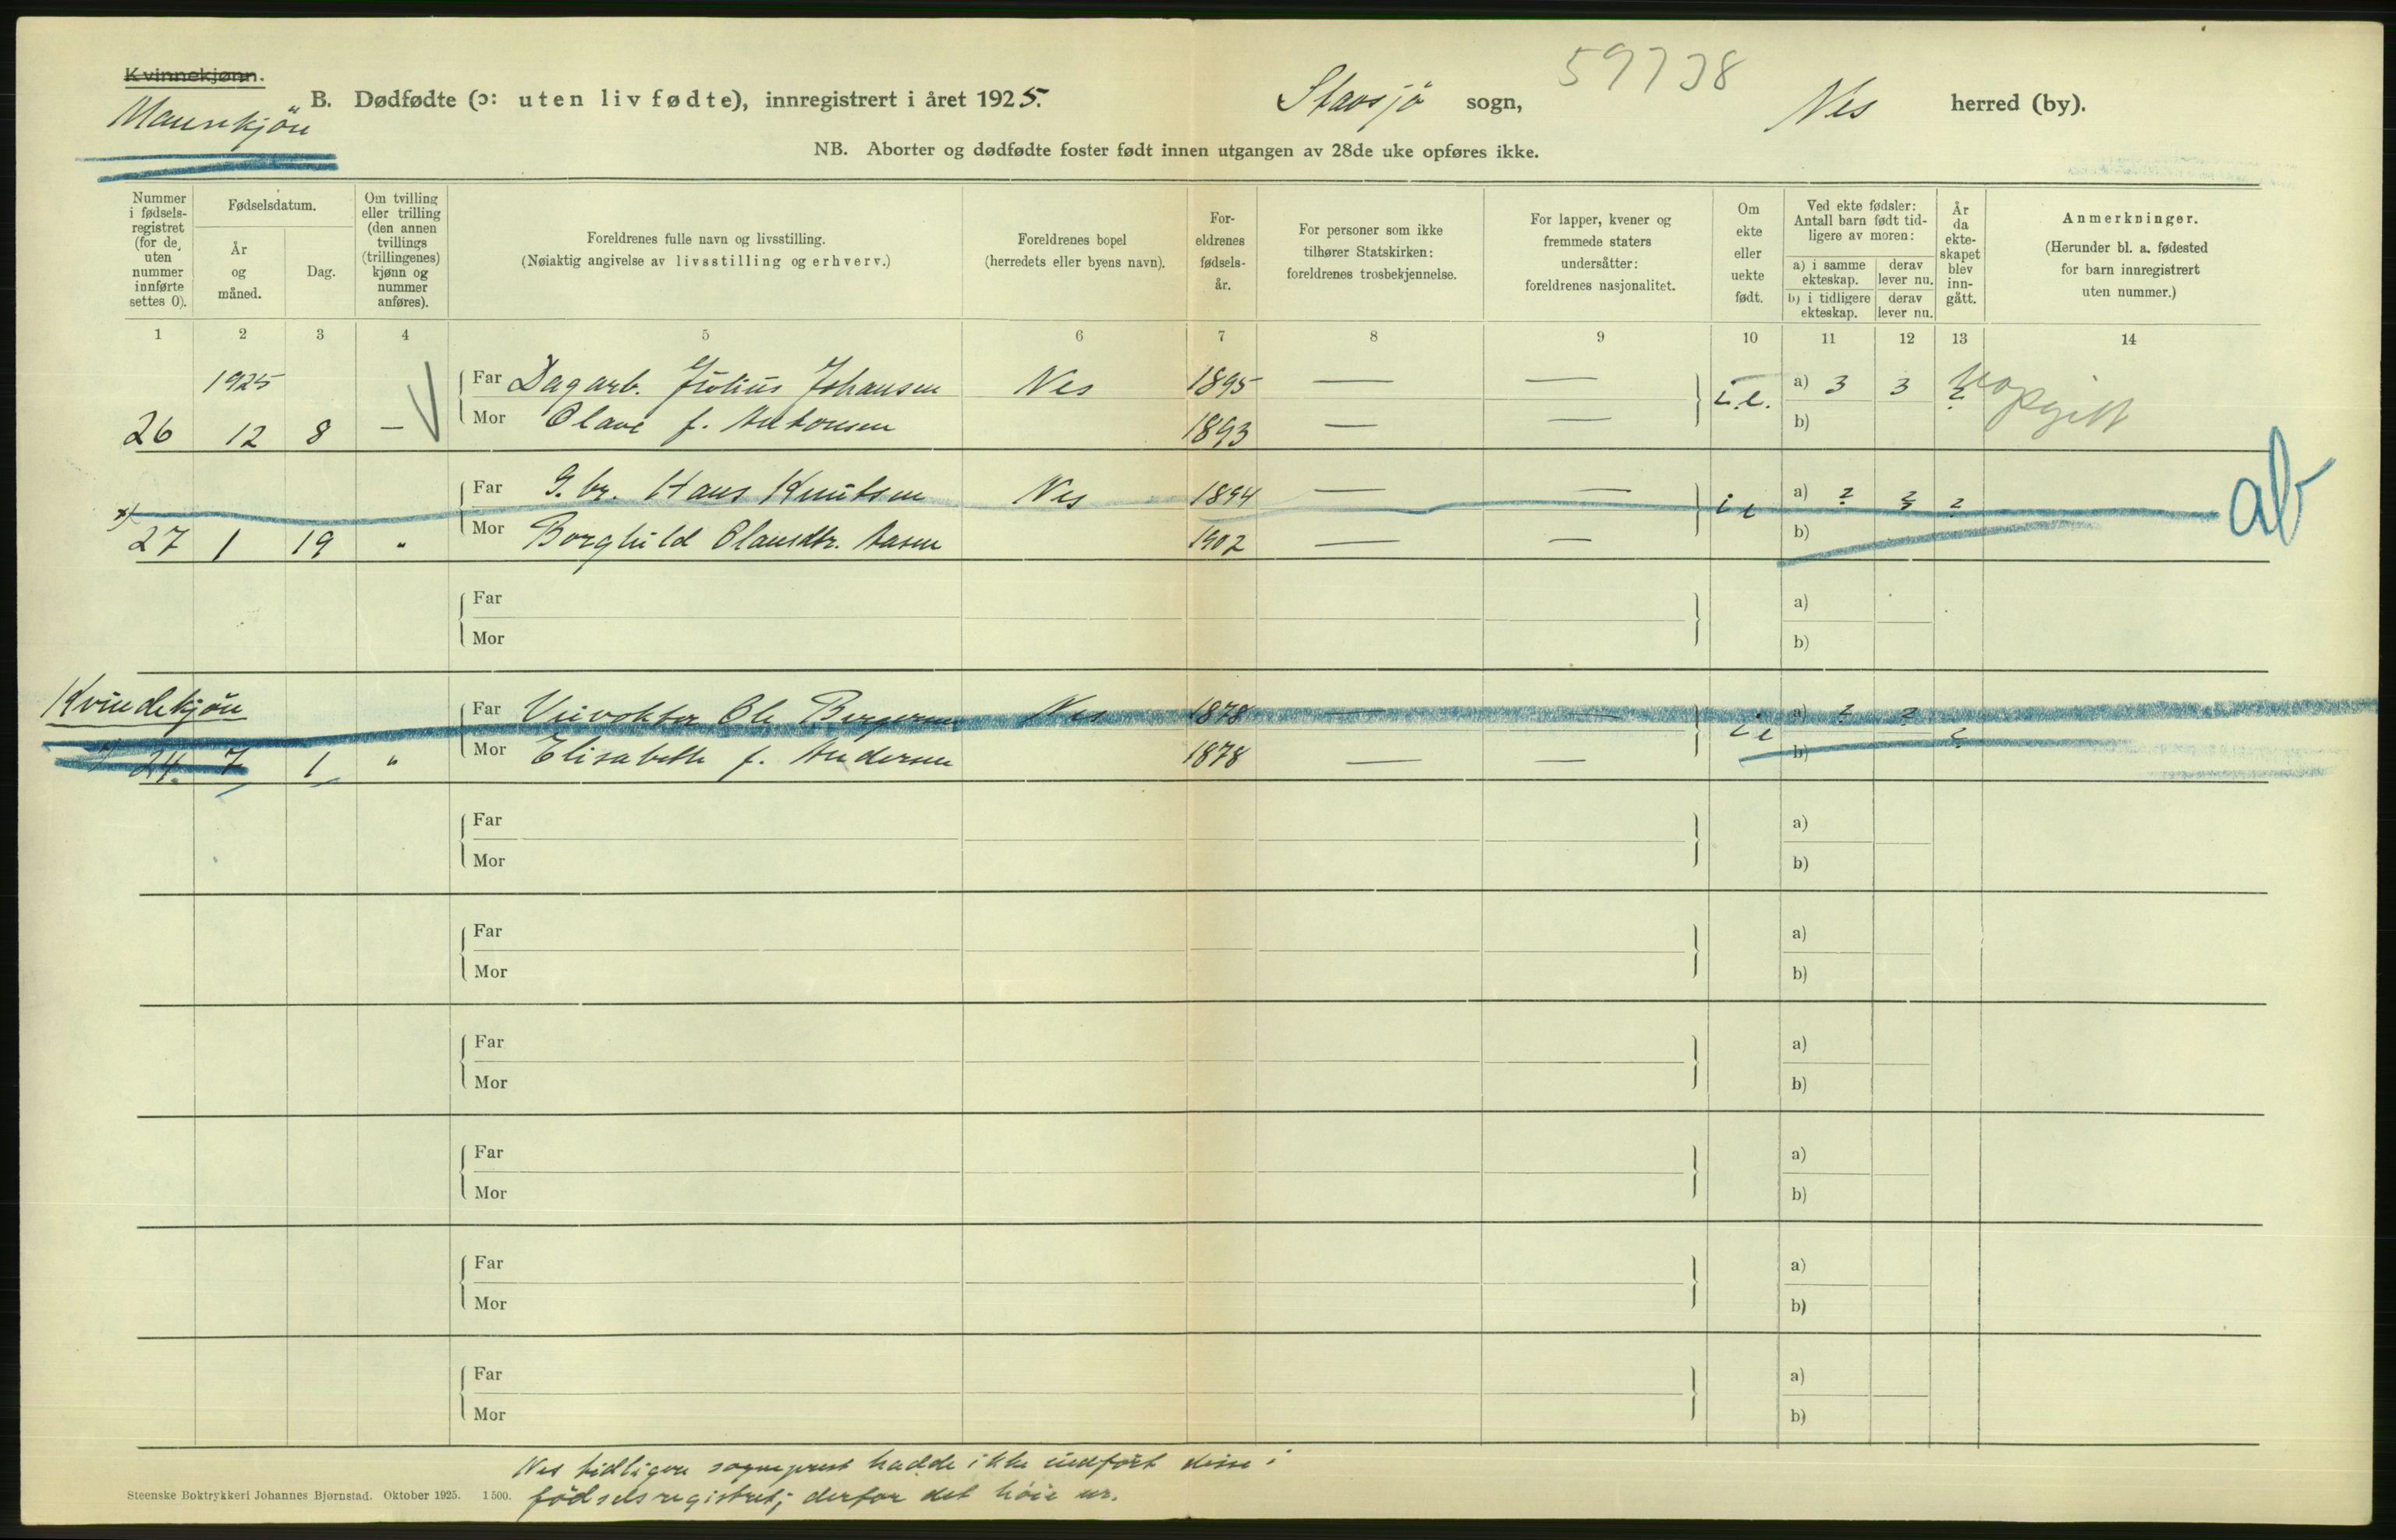 Kvinnekjønn.
Mannkjön
B. Dødfødte (ɔ: uten liv fødte), innregistrert i året 1925.
Stavsjö sogn,
59738
Nes herred (by).
NB. Aborter og dødfødte foster født innen utgangen av 28de uke opføres ikke.
Nummer i fødsels-registret (for de uten nummer innførte settes 0).
Fødselsdatum.
År og måned.
Dag.
Om tvilling eller trilling (den annen tvillings (trillingenes) kjønn og nummer anføres).
Foreldrenes fulle navn og livsstilling.
(Nøiaktig angivelse av livsstilling og erhverv.)
Foreldrenes bopel
(herredets eller byens navn).
For-eldrenes fødsels-år.
For personer som ikke tilhører Statskirken: foreldrenes trosbekjennelse.
For lapper, kvener og fremmede staters undersåtter: foreldrenes nasjonalitet.
Om ekte eller uekte født.
Ved ekte fødsler: Antall barn født tid-ligere av moren:
a) i samme ekteskap.
derav lever nu.
b) i tidligere ekteskap.
derav lever nu.
År da ekte-skapet blev inn-gått.
Anmerkninger.
(Herunder bl. a. fødested for barn innregistrert uten nummer.)
1 2 3 4 5 6 7 8 9 10 11 12 13 14
1925
Far Dagarb. Julius Johansen Nes 1895 — — a) 3 3 ?
uopgitt
26 12 8 — Mor Olave f. Antonsen 1893 — — i.e. b)
Far G. br. Hans Knutsen Nes 1894 — — i e a) ? ? ?
ab
x) 27 1 19 " Mor Borghild Olausdtr. Aasen 1902 — — b)
Far a)
Mor b)
Kvindekjön
Far Veivokter Ole Bergersen Nes 1878 — — i e a) ? ? ?
24. 7 1 " Mor Elisabeth f. Andersen 1878 — — b)
Far a)
Mor b)
Far a)
Mor b)
Far a)
Mor b)
Far a)
Mor b)
Far a)
Mor b)
Far a)
Mor b)
Nes tidligere sogneprest hadde ikke innført disse i
Steenske Boktrykkeri Johannes Bjørnstad. Oktober 1925. 1500.
fødselsregistret; derfor det høie nr.